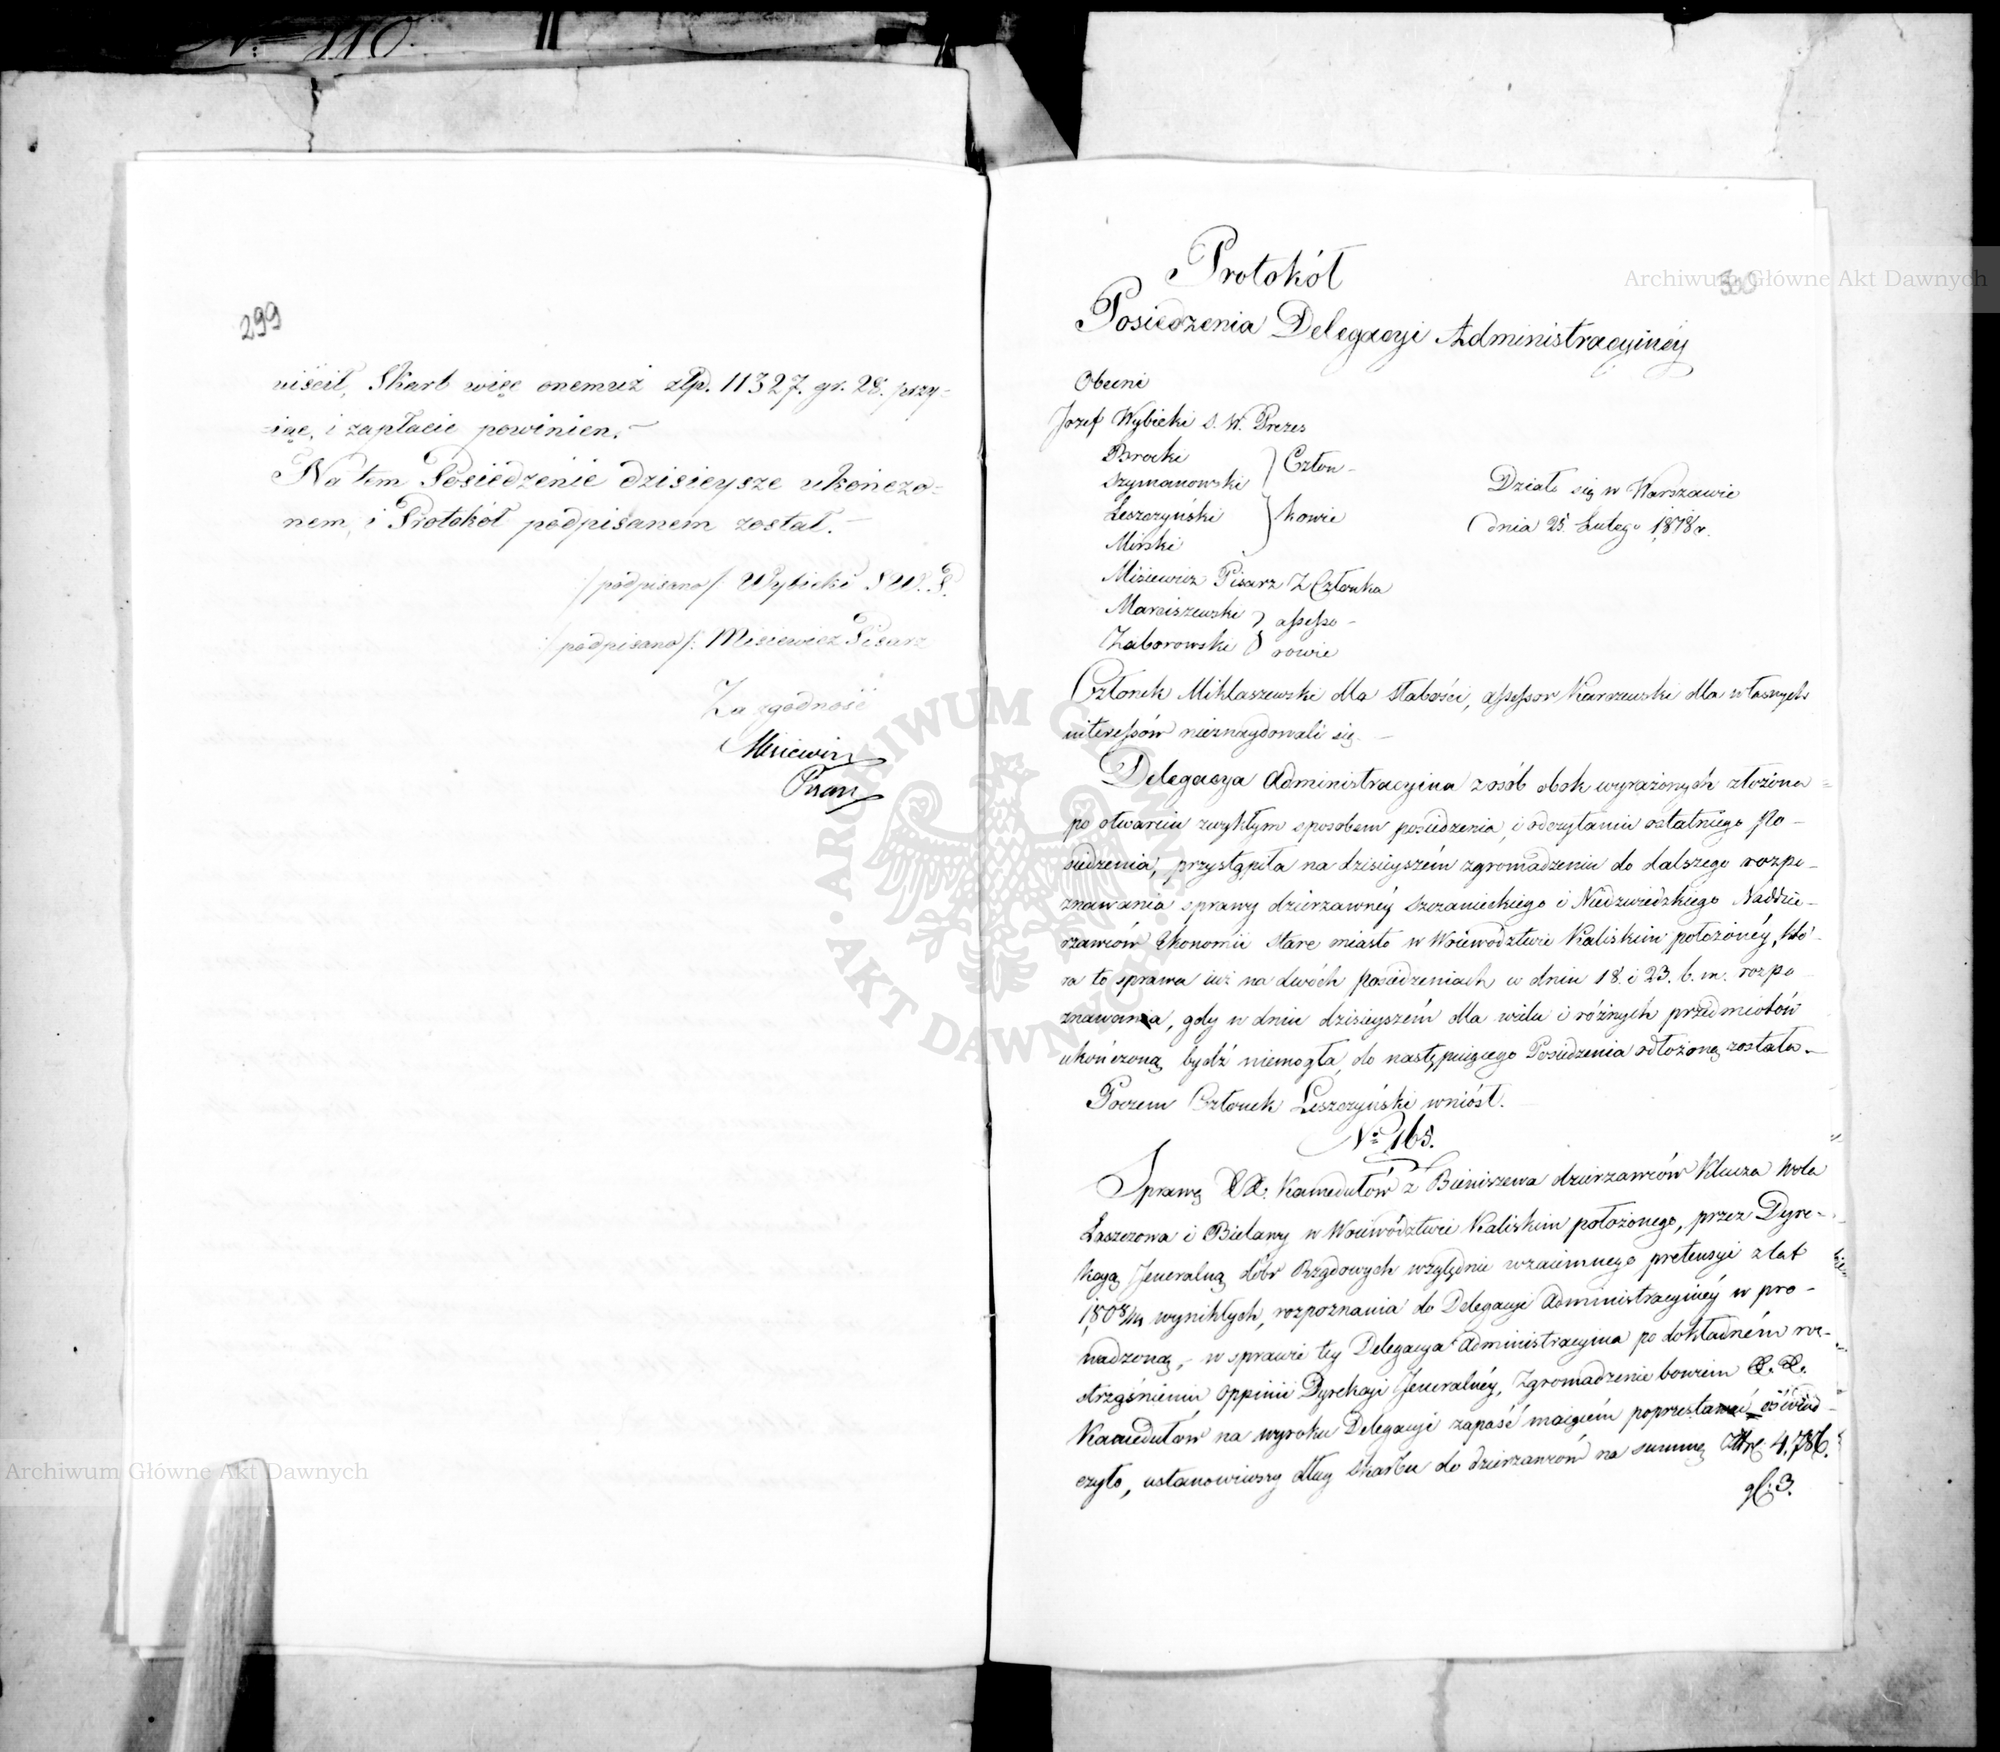 № 110.
299
uiścił, Skarb więc onemuż złp. 11327. gr. 28. przy-
iąć, i zapłacić powinien.
Na tem Posiedzenie dzisieysze ukończo-
nem, i Protokół podpisanem został.
/podpisano/ Wybicki S.W.P.
/podpisano/: Misiewicz Pisarz
Za zgodność
Misiewicz
Pisarz
300
Protokół
Posiedzenia Delegacyi Administracyinéy
Obecni
Jozef Wybicki S. W. Prezes
Brocki
Szymanowski
Człon-
Leszczyński
kowie
Mirski
Działo się w Warszawie
dnia 25. Lutego 1818 r.
Misiewicz Pisarz Z Członka
Marciszewski
assesso-
Zaborowski
rowie
Członek Miklaszewski dla słabości, assessor Karczewski dla własnych
interessów nieznaydowali się.
Delegacya Administracyina z osób obok wyrażonych złożona
po otwarciu zwykłym sposobem posiedzenia, i odczytaniu ostatniego Po-
siedzenia, przystąpiła na dzisieyszém zgromadzeniu do dalszego rozpo-
znawania sprawy dzierzawnéy Szczanieckiego i Niedzwiedzkiego Naddzie-
rzawców Ekonomii Stare miasto w Woiewodztwie Kaliskim położonéy, któ-
ra to sprawa iuż na dwóch posiedzeniach w dniu 18. i 23. b. m. rozpo
znawania, gdy w dniu dzisieyszém dla wielu i różnych przedmiotów
ukończoną bydź niemogła, do następuiącego Posiedzenia odłożoną została.
Poczem Członek Leszczyński wniósł.
№ 165.
Sprawę XX. Kamedułów z Bieniszewa dzierzawców Klucza Wola
Łaszczowa i Bielawy w Woiewództwie Kaliskim położonego, przez Dyre-
kcyą Jeneralną dóbr Rządowych względnie wzaiemnego pretensyi z lat
1808/14 wynikłych, rozpoznania do Delegacyi Administracyinéy wpro-
wadzoną, - w sprawie tey Delegacya Administracyina po dokładném roz-
strząśnieniu Oppinii Dyrekcyi Jeneralnéy, Zgromadzenie bowiem X. X.
Kamedułów na wyroku Delegacyi zapaść maiącém poprzestawać oświad-
czyło, ustanowiwszy dług skarbu do dzierzawców na summę Złtp. 4,786.
gl: 3.
Archiwum Główne Akt Dawnych
Archiwum Główne Akt Dawnych
· ARCHIWUM GŁÓWNE · AKT DAWNYCH